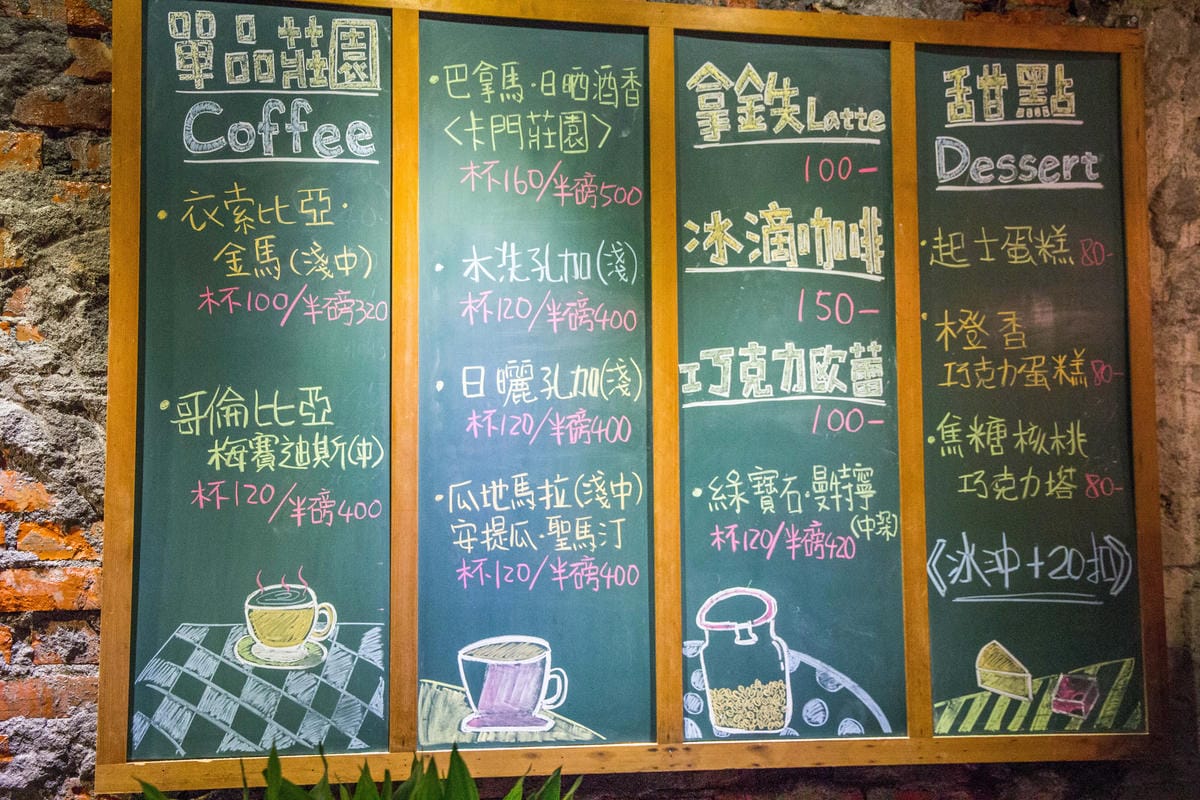 單品莊園
Coffee
衣索比亞·
金馬(淺中)
杯100/半磅320
哥倫比亞
梅賽迪斯(中)
杯120/半磅400
·巴拿馬·日晒酒香
〈卡門莊園〉
杯160/半磅500
·水洗孔加(淺)
杯120/半磅400
·日曬孔加(淺)
杯120/半磅400
·瓜地馬拉(淺中)
安提瓜·聖馬汀
杯120/半磅400
拿鐵Latte
100-
冰滴咖啡
150-
巧克力歐蕾
100-
·綠寶石·曼特寧
(中深)
杯120/半磅420
甜點
Dessert
·起士蛋糕 80-
·橙香
巧克力蛋糕 80-
·焦糖核桃
巧克力塔 80-
《冰沖+20扣》